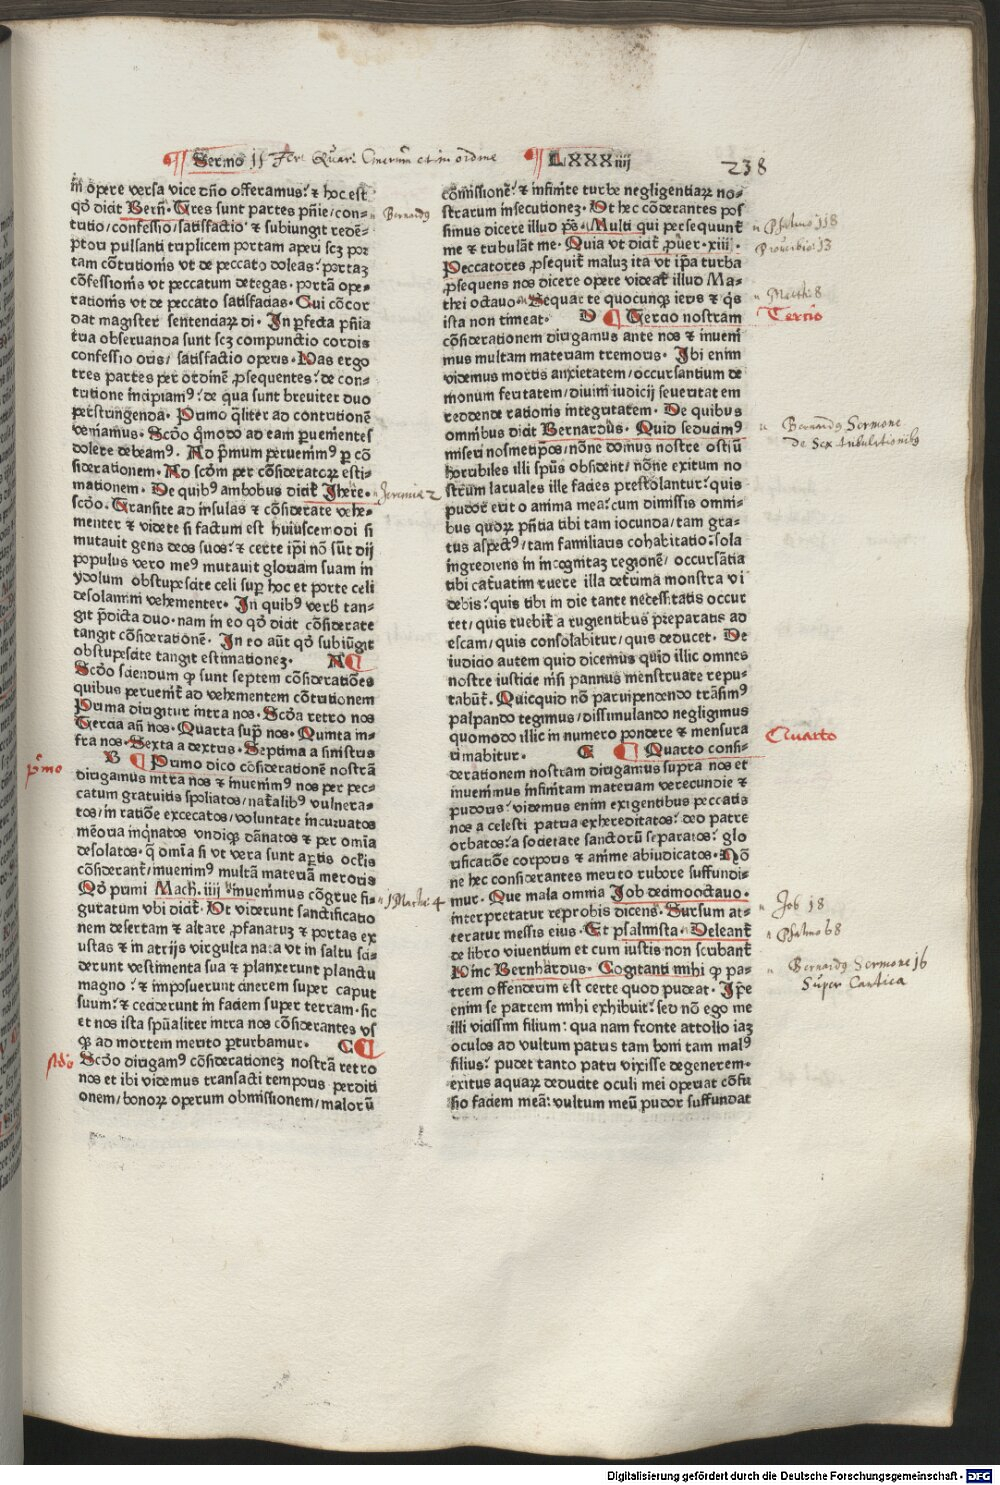 Sermo 11 Fer. Quar. Cinerum et in ordine
LXXXiiij
238
in opere versa vice dño offeramus: ⁊ hoc est
qđ dicit Berñ. Tres sunt partes pñie/con-
tritio/confessio/satisfactio ⁊ subiungit redē-
ptori pulsanti triplicem portam aperi scꝫ por
tam cōtritionis vt de peccato doleas: portaꝫ
cōfessionis vt peccatum detegas. portā ope-
rationis vt de peccato satisfacias. Cui cōcor
dat magister sententiaꝝ di. In ꝑfecta pñia
tria obseruanda sunt scꝫ compunctio cordis
confessio oris/ satisfactio operis. Has ergo
tres partes per ordinē ꝓsequentes: de con-
tritione incipiamꝰ: de qua sunt breuiter duo
perstringenda. Primo qͣliter ad contritionē
veniamus. Scđo qͦmodo ad eam ꝑuenientes
dolere debeamꝰ. Ad pͥmum peruenimꝰ ꝑ cō
siderationem. Ad scđm per cōsideratoꝝ esti-
mationem. De quibꝰ ambobus dicit̉ Jhere.
scđo. Transite ad insulas ⁊ cōsiderate vehe-
menter ⁊ videte si factum est huiuscemodi si
mutauit gens deos suos: ⁊ certe ip̄i nō sūt dij
populus vero meꝰ mutauit gloriam suam in
ydolum obstupescite celi suꝑ hoc et porte celi
desolamini vehementer. In quibꝰ verb̄ tan-
git p̄dicta duo. nam in eo qđ dicit cōsiderate
tangit cōsiderationē. In eo aūt qđ subiūgit
obstupescite tangit estimationeꝫ. A
Scđo sciendum ꝙ sunt septem cōsideratiōes
quibus peruenit̉ ad vehementem cōtritionem
Prima dirigitur intra nos. Scđa retro nos
Tercia añ nos. Quarta supͣ nos. Quinta in-
fra nos. Sexta a dextris. Septima a sinistris
B ¶ Primo dico cōsiderationē nostrā
dirigamus intra nos ⁊ inuenimꝰ nos per pec-
catum gratuitis spoliatos/natͣalibꝰ vulnera-
tos/in ratiōe excecatos/voluntate incuruatos
mēoria inqͥnatos vndiqꝫ dānatos ⁊ per omīa
desolatos. q̄ omīa si vt vera sunt aꝑtis oclis
cōsiderant̉/inuenimꝰ multā materiā meroris
Qđ primi Mach. iiij inuenimus cōgrue fi-
guratum vbi dicit̉. Vt viderunt sanctificatio
nem desertam ⁊ altare ꝓfanatuꝫ ⁊ portas ex
ustas ⁊ in atrijs virgulta nata vt in saltu sci-
derunt vestimenta sua ⁊ planxerunt planctu
magno: ⁊ imposuerunt cinerem super caput
suum: ⁊ ceciderunt in faciem super terram. sic
et nos ista spūaliter intra nos cōsiderantes vs
qꝫ ad mortem merito ꝑturbamur. C
Scđo dirigamꝰ cōsiderationeꝫ nostrā retro
nos et ibi videmus transacti temporis perditi
onem/bonoꝝ operum obmissionem/maloꝝ
comissionē: ⁊ infinite turbe negligentiaꝝ no-
strarum insecutioneꝫ. Vt hec cōsiderantes pos
simus dicere illud p̄s. Multi qui persequunt̉
me ⁊ tribulāt me. Quia vt dicit̉ ꝓuer. xiij.
Peccatores ꝓsequit̉ maluꝫ ita vt ip̄a turba
ꝓsequens nos dicere opere videat̉ illud Ma-
thei octauo. Sequar te quocunqꝫ ieris ⁊ qͥs
ista non timeat. D ¶ Tercio nostram
cōsiderationem dirigamus ante nos ⁊ inueni
mus multam materiam tremoris. Ibi enim
videmus mortis anxietatem/occursantium de
monum feritatem/diuini iudicij seueritatem
reddende rationis integritatem. De quibus
omnibus dicit Bernardus. Quid seducimꝰ
miseri nosmetip̄os/nōne domus nostre ostiū
horribiles illi spūs obsident/nōne exitum no
strum laruales ille facies prestolantur: quis
pudor erit o anima mea: cum dimissis omni-
bus quoꝝ pn̄tia tibi tam iocunda/tam gra-
tus aspectꝰ/tam familiaris cohabitatio: sola
ingrediens in incognitaꝫ regionē/ occursātia
tibi cat̉uatim ruere illa deterrima monstra vi
debis: quis tibi in die tante necessitatis occur
ret/quis tuebit̉ a rugientibus preparatis ad
escam/quis consolabitur/quis deducet. De
iudicio autem quid dicemus quid illic omnes
nostre iusticie nisi pannus menstruate repu-
tabūt̉. Quicquid nō paruipendendo trāsimꝰ
palpando tegimus/dissimulando negligimus
quomodo illic in numero pondere ⁊ mensura
rimabitur. E ¶ Quarto consi-
derationem nostram dirigamus supra nos et
inuenimus infinitam materiam verecundie ⁊
pudoris: videmus enim exigentibus peccatis
nos a celesti patria exhereditatos: deo patre
orbatos: a societate sanctorū separatos: glo
rificatiōe corporis ⁊ anime abiudicatos. Nō
ne hec considerantes merito rubore suffundi-
mur. Que mala omnia Job decimooctauo.
interpretatur reprobis dicens. Sursum at-
teratur messis eius. Et psalmista. Deleant̉
de libro viuentium et cum iustis non scribant̉
Hinc Bernhardus. Cogitanti mihi ꝙ pa-
trem offenderim est certe quod pudeat. Ip̄e
enim se patrem mihi exhibuit: sed nō ego me
illi vicissim filium: qua nam fronte attollo iaꝫ
oculos ad vultum patris tam boni tam malꝰ
filius: pudet tanto patri vixisse degenerem.
exitus aquaꝝ deducite oculi mei operiat cōfu
sio faciem meā: vultum meū pudor suffundat
Bernardꝰ
Jeremia 2
1 Macha: 4
pͥmo
scđo
Psalmo 118
Proverbio: 13
Matth: 8
Tercio
Bernardꝰ Sermone
de Sex tribulationibꝰ
Quarto
Job 18
Psalmo 68
Bernardꝰ Sermone 16
Super Cantica
Digitalisierung gefördert durch die Deutsche Forschungsgemeinschaft - DFG